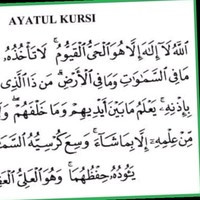 AYATUL KURSI
اللَّهُ لَا إِلَٰهَ إِلَّا هُوَ الْحَيُّ الْقَيُّومُ ۚ لَا تَأْخُذُهُ
مَا فِي السَّمَاوَاتِ وَمَا فِي الْأَرْضِ ۗ مَن ذَا الَّذِي
بِإِذْنِهِ ۚ يَعْلَمُ مَا بَيْنَ أَيْدِيهِمْ وَمَا خَلْفَهُمْ ۖ
مِّنْ عِلْمِهِ إِلَّا بِمَا شَاءَ ۚ وَسِعَ كُرْسِيُّهُ
يَئُودُهُ حِفْظُهُمَا ۚ وَهُوَ الْعَلِيُّ